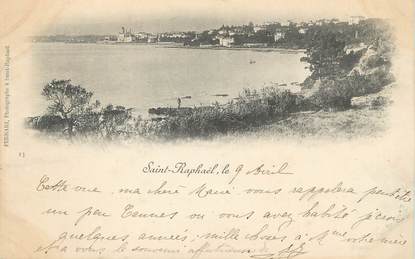 FERRARI, Photographe à Saint-Raphaël.
13
Saint-Raphaël, le 9 Avril
Cette vue, ma chère Marie vous rappelera peut être
un peu Cannes ou vous avez habité je crois
quelques années; mille choses à Mme votre mère
et à vous le souvenir affectueux de